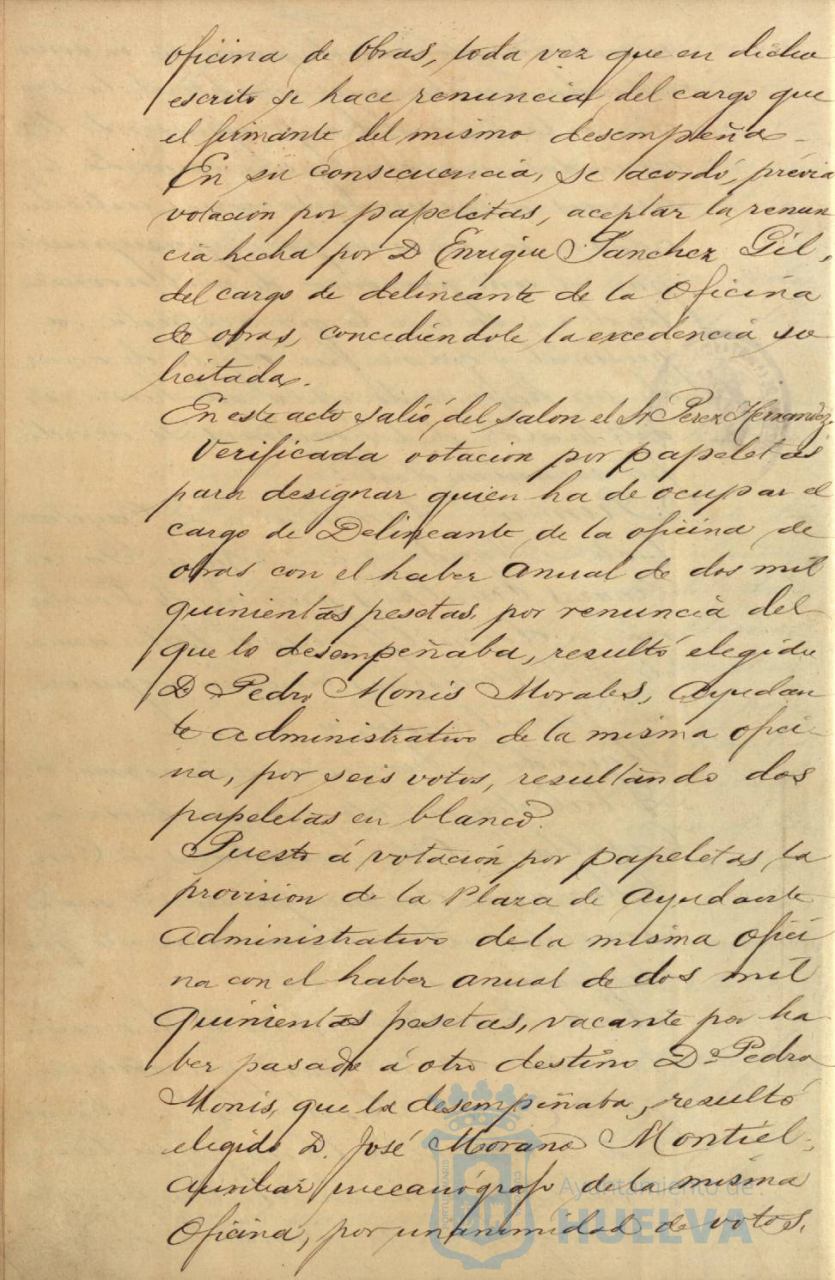 oficina de Obras, toda vez que en dicho
escrito se hace renuncia del cargo que
el firmante del mismo desempeña.
En su consecuencia, se acordó, prévia
votación por papeletas, aceptar la renun
cia hecha por D Enrique Sanchez Gil,
del cargo de delineante de la Oficina
de obras, concediéndole la excedencia so
licitada.
En este acto salió del salon el Sr Perez Hernandez.
Verificada votacion por papeletas
para designar quien ha de ocupar el
cargo de Delineante de la oficina de
obras con el haber anual de dos mil
quinientas pesetas, por renuncia del
que lo desempeñaba, resultó elegido
D Pedro Monis Morales, Ayudan
te administrativo de la misma ofici-
na, por seis votos, resultando dos
papeletas en blanco.
Puesto á votación por papeletas, la
provision de la Plaza de Ayudante
Administrativo de la misma ofici
na con el haber anual de dos mil
quinientas pesetas, vacante por ha
ber pasado á otro destino D. Pedro
Monis, que la desempeñaba, resultó
elegido D. José Morano Montiel,
auxiliar mecanógrafo de la misma
Oficina, por unanimidad de votos.
Ayuntamiento de
HUELVA